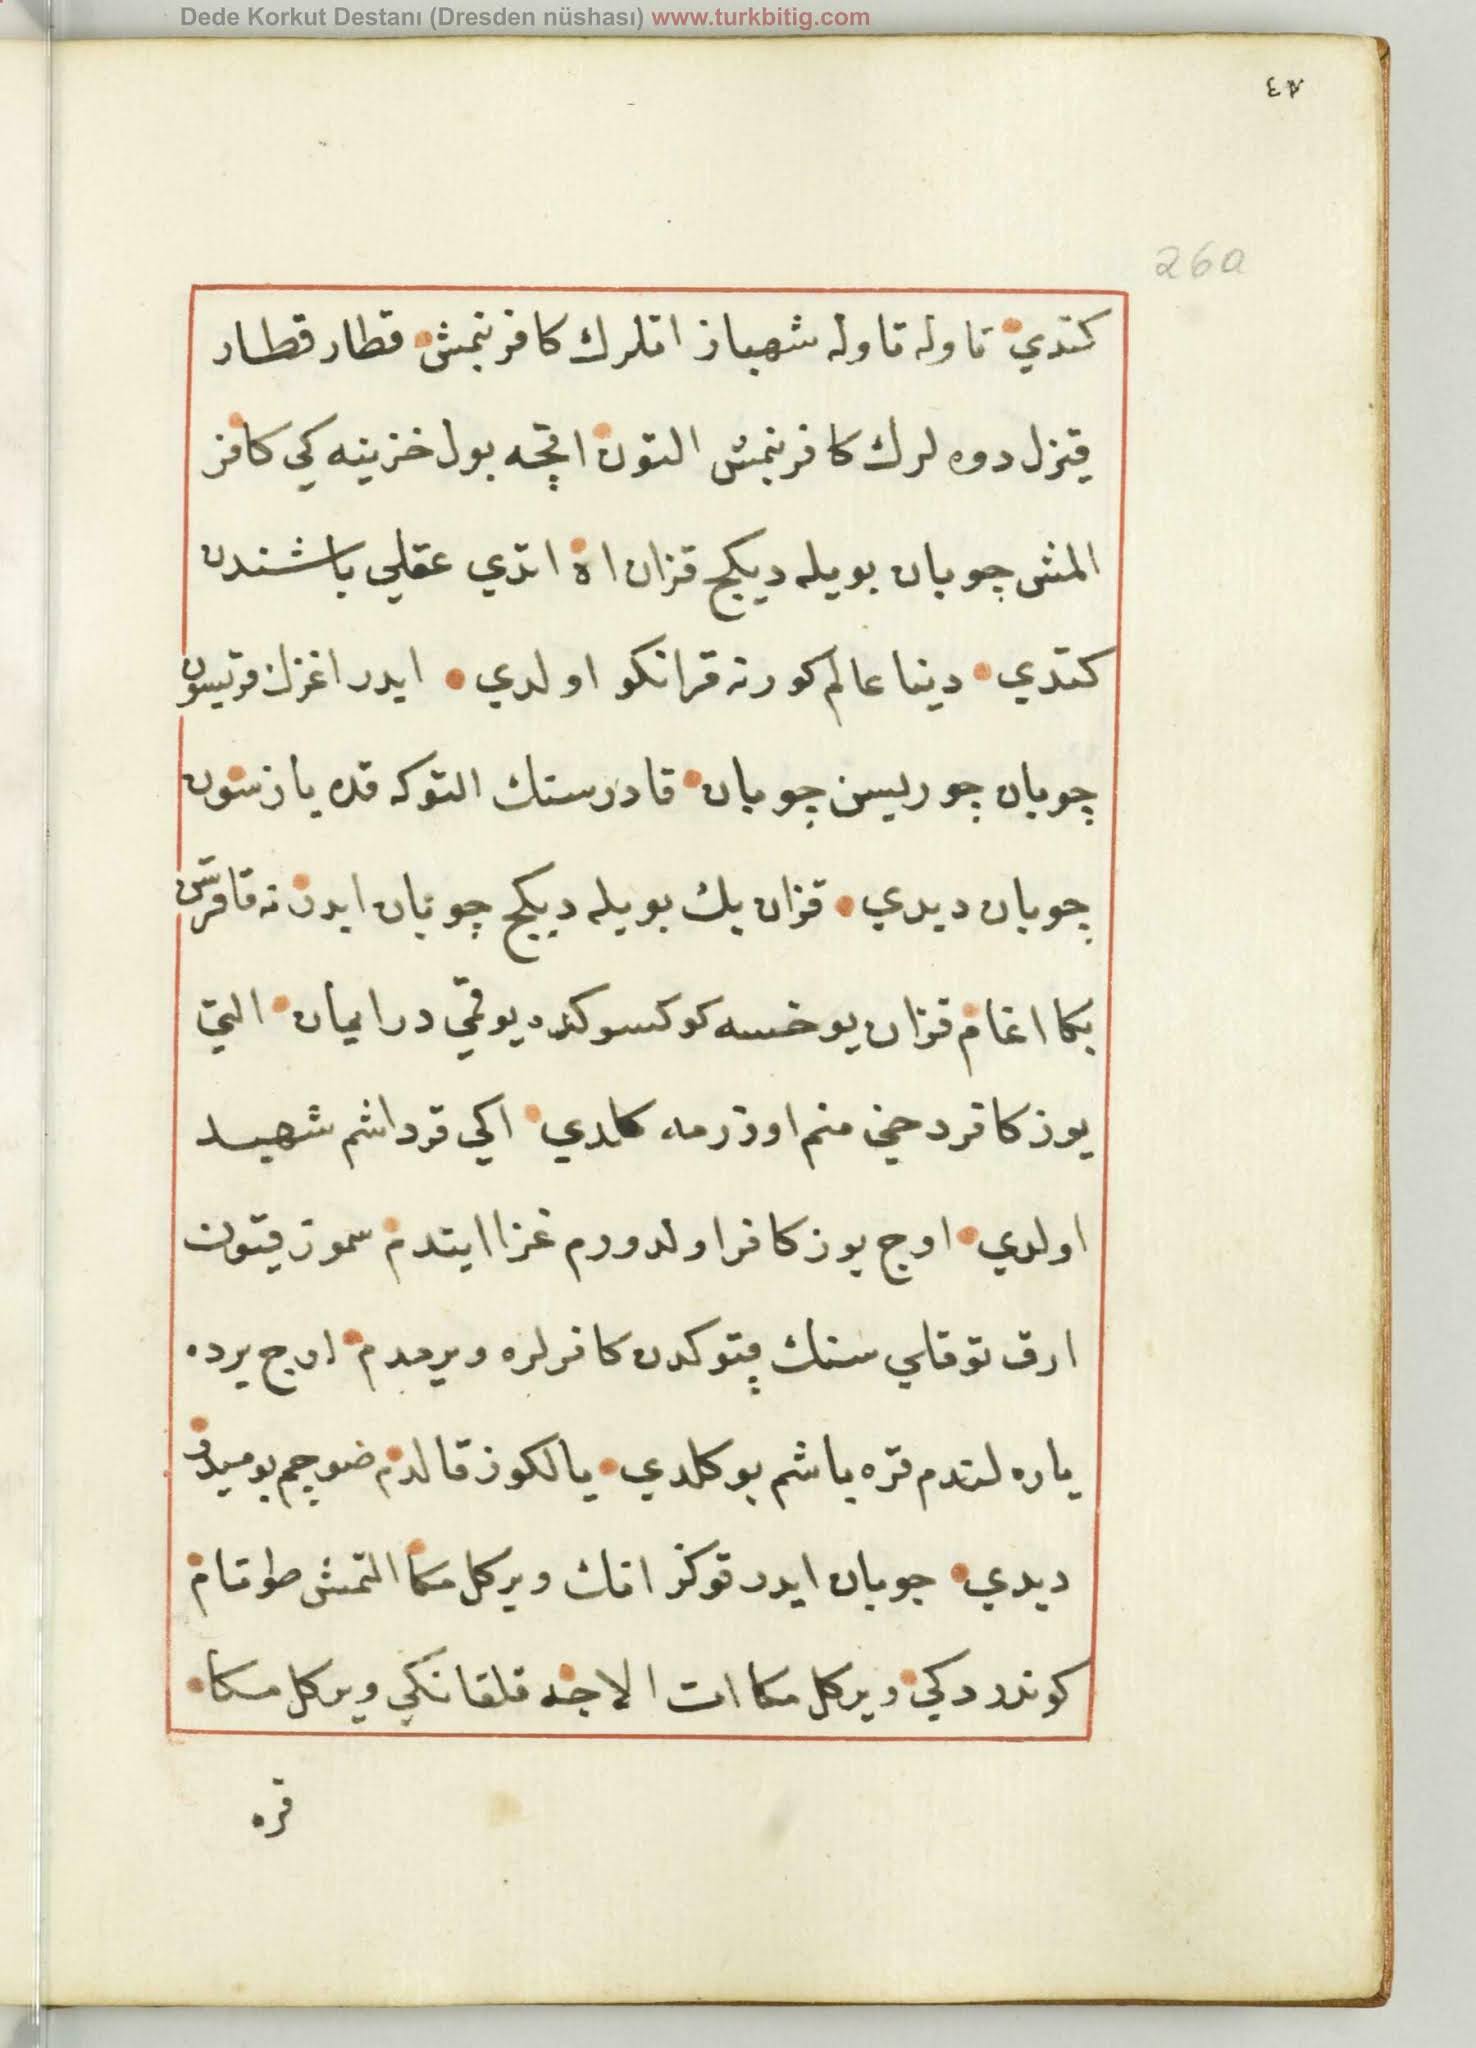 Dede Korkut Destanı (Dresden nüshası) www.turkbitig.com
٤٧
26a
كتدي تاوله تاوله شهباز اتلرك كافر بنمش قطار قطار
قيزل دوه لرك كافر بنمش التون اقچه بول خزينه كي كافر
المش چوبان بويله ديكج قزان اه اتدي عقلي باشندن
كتدي دينا عالم كوزنه قرانكو اولدي ايدر اغزك قوريسون
چوبان چوريسن چوبان قادر سنك النوكه قده يازسون
چوبان ديدي قزان بك بويله ديكج چوبان ايدر نه قاقرسن
بكا اغام قزان يوخسه كوكسوكده يوقمي در ايمان التي
يوز كافر دخي منم اوزرمه كلدي اكي قرداشم شهيد
اولدي اوج يوز كافر اولدوردم غزا ايتدم سموز قيون
ارق توقلي سنك قپوكدن كافرلره ويرمدم اوج يرده
ياره لندم قره باشم بوكلدي يالكوز قالدم ضوچم بوميدر
ديدي چوبان ايدر قوكر اتك ويركل مكا التمش طوتام
كوندردكي ويركل مكا ات الاجه قلقانكي ويركل مكا
قره